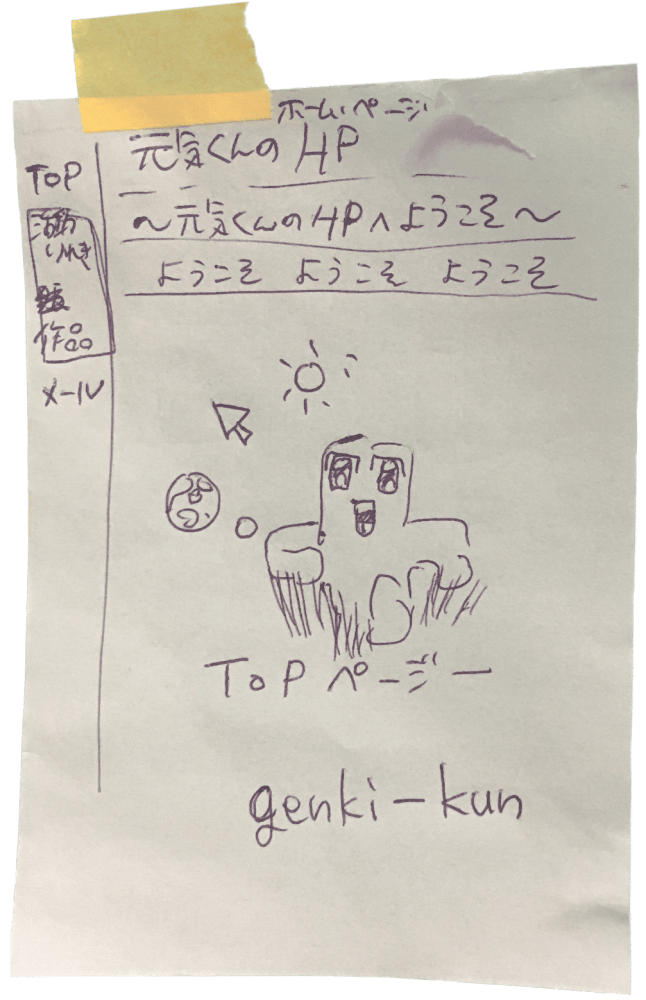 ホームページ
元気くんのHP
～元気くんのHPへようこそ～
ようこそ ようこそ ようこそ
TOP
作品
メール
TOPページー
genki-kun